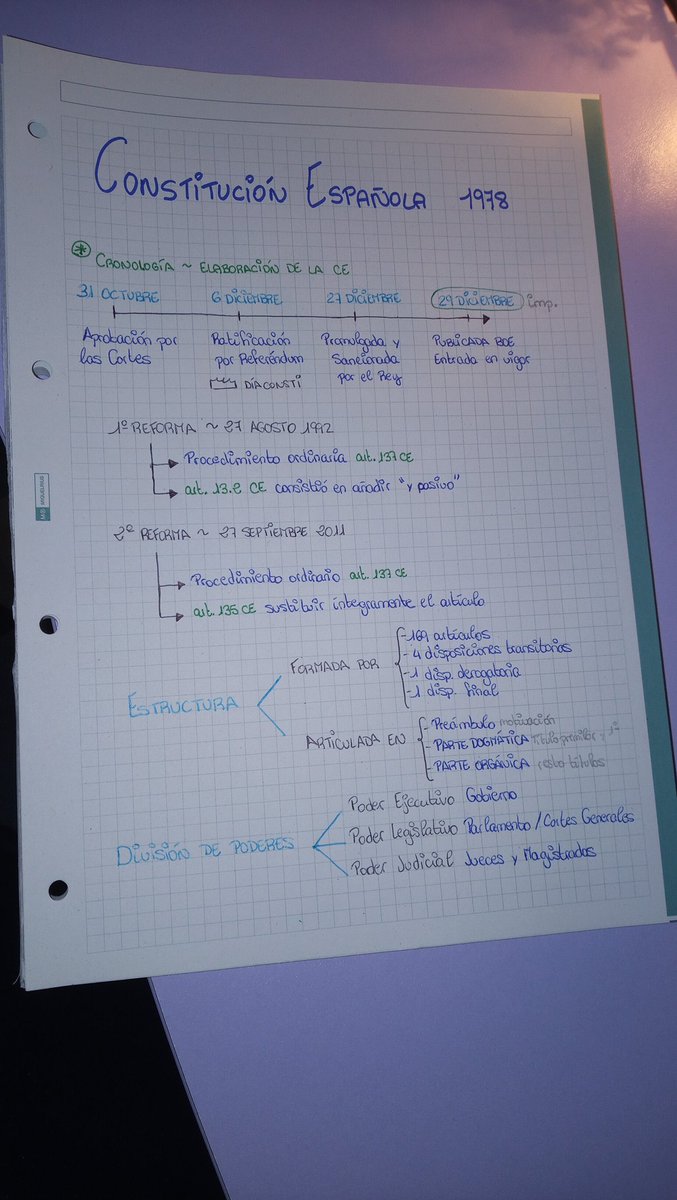 CONSTITUCIÓN ESPAÑOLA 1978
* CRONOLOGÍA ~ ELABORACIÓN DE LA CE
31 OCTUBRE 6 DICIEMBRE 27 DICIEMBRE 29 DICIEMBRE imp.
Aprobación por las Cortes
Ratificación por Referéndum
DÍA CONSTI
Promulgada y Sancionada por el Rey
PUBLICADA BOE
Entrada en vigor
1º REFORMA ~ 27 AGOSTO 1992
Procedimiento ordinaria art. 137 CE
art. 13.2 CE consistió en añadir "y pasivo"
2º REFORMA ~ 27 SEPTIEMBRE 2011
Procedimiento ordinario art. 137 CE
art. 135 CE sustituir íntegramente el artículo
ESTRUCTURA
FORMADA POR
-169 artículos
-4 disposiciones transitorias
-1 disp. derogatoria
-1 disp. final
ARTICULADA EN
-Preámbulo motivación
-PARTE DOGMÁTICA título preliminar y 1º
-PARTE ORGÁNICA resto títulos
DIVISIÓN DE PODERES
Poder Ejecutivo Gobierno
Poder Legislativo Parlamento/Cortes Generales
Poder Judicial Jueces y Magistrados